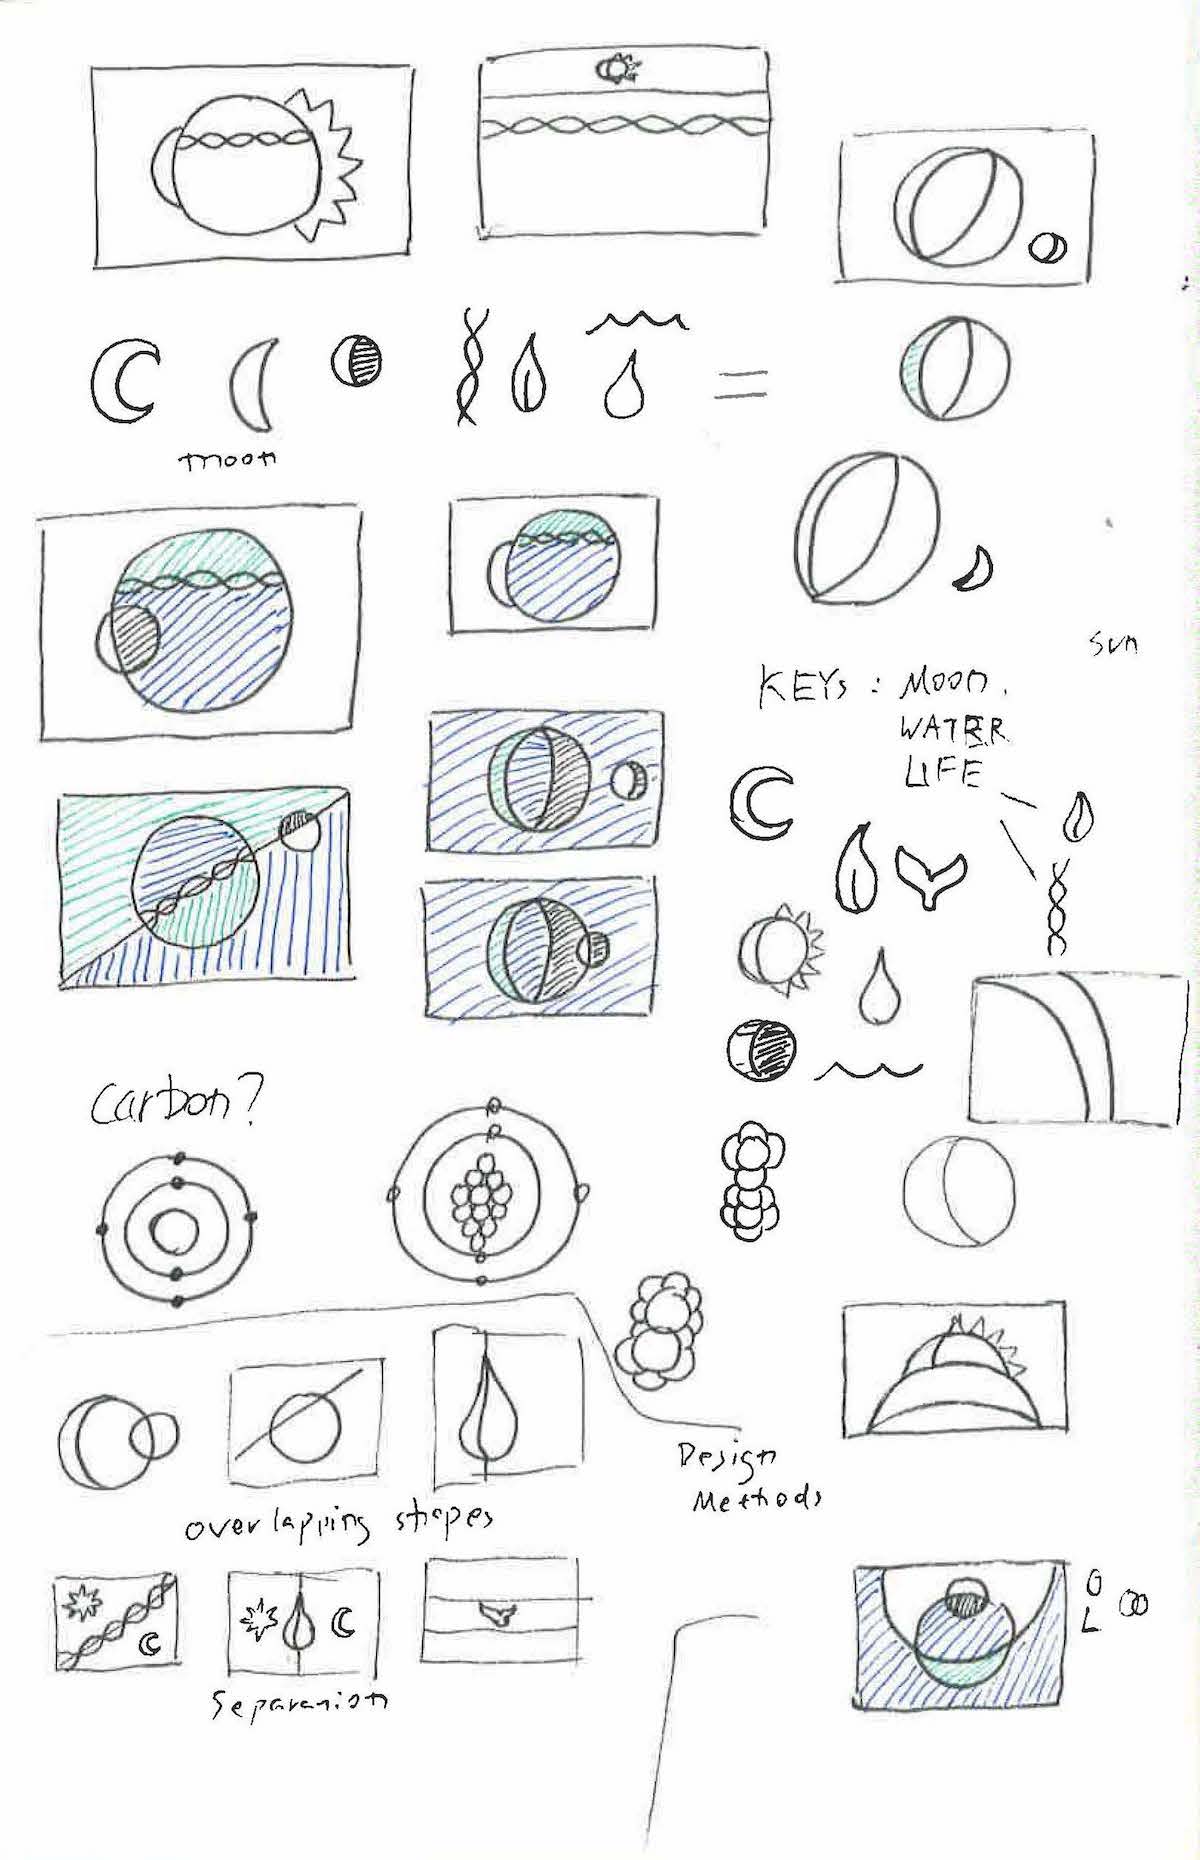 moon
sun
KEYs : Moon.
WATER
LIFE
Carbon?
Design
Methods
overlapping shapes
O
L
Separation